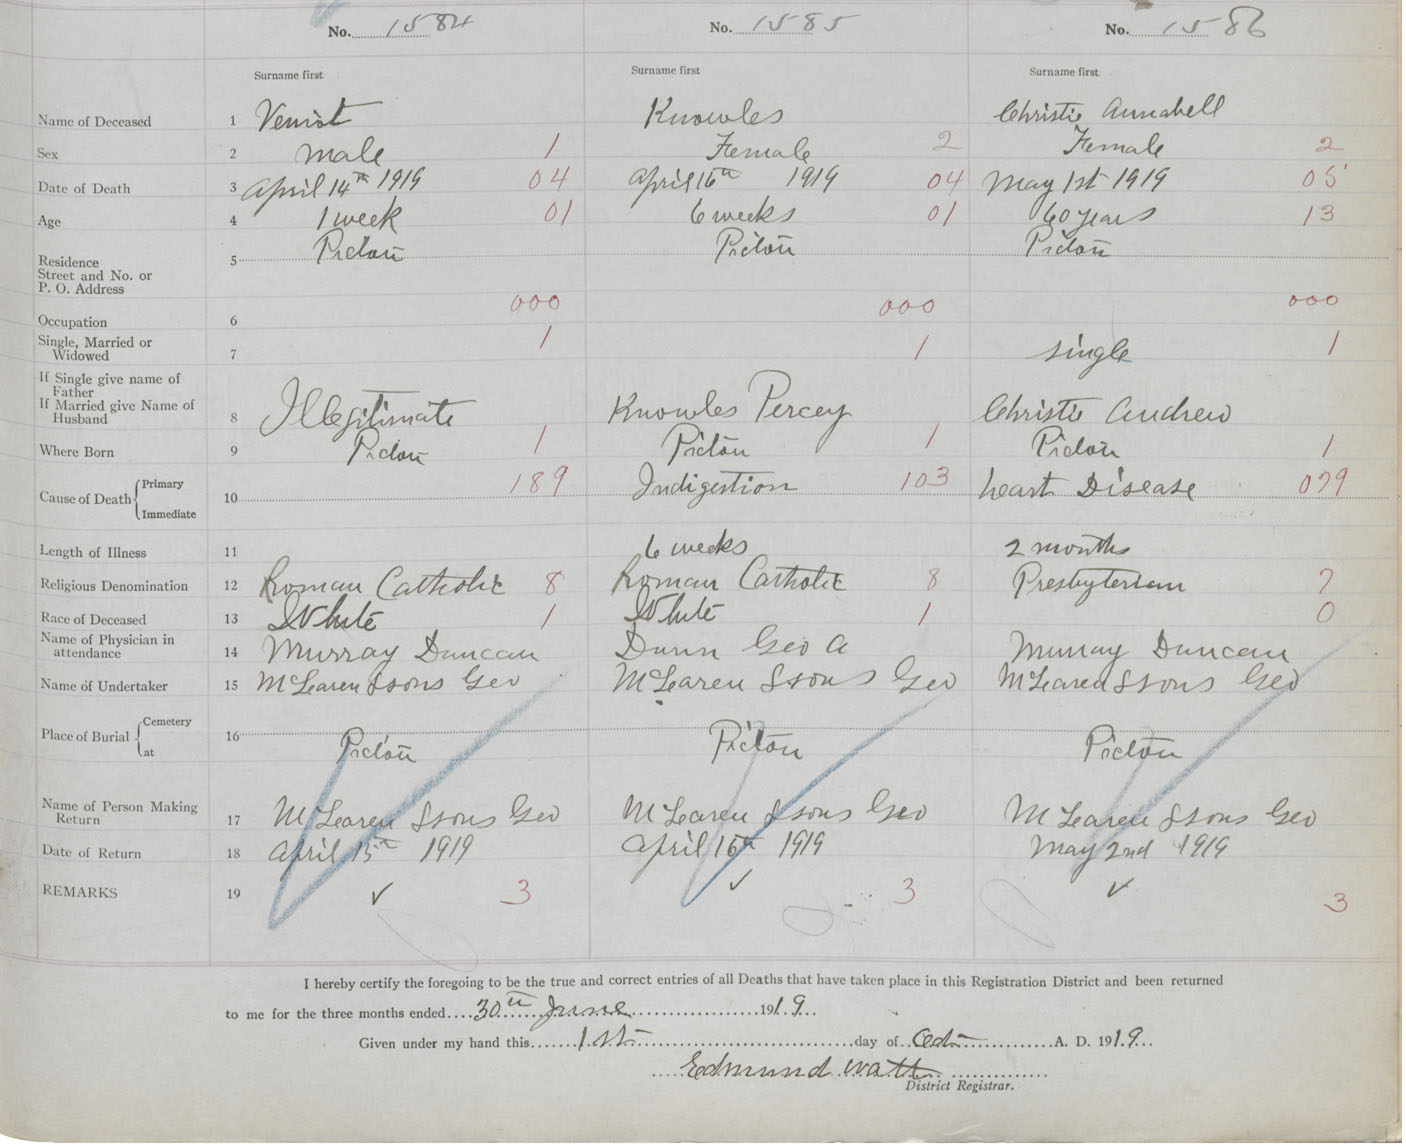 No. 1584 No. 1585 No. 1586
Surname first Surname first Surname first
Name of Deceased 1 Veniot Knowles Christie Annabell
Sex 2 male 1 Female 2 Female 2
Date of Death 3 April 14th 1919 04 April 16th 1919 04 May 1st 1919 05
Age 4 1 week 01 6 weeks 01 60 years 13
Residence 5 Pictou Pictou Pictou
Street and No. or
P. O. Address
000 000 000
Occupation 6
Single, Married or 1 1 1
Widowed 7 single
If Single give name of
Father
If Married give Name of
Husband 8 Illegitimate Knowles Percey Christie Andrew
Where Born 9 Pictou 1 Pictou 1 Pictou 1
Cause of Death { Primary 10 189 Indigestion 103 heart Disease 079
Immediate
Length of Illness 11 6 weeks 2 months
Religious Denomination 12 Roman Catholic 8 Roman Catholic 8 Presbyterian 7
Race of Deceased 13 White 1 White 1 0
Name of Physician in
attendance 14 Murray Duncan Dunn Geo A Murray Duncan
Name of Undertaker 15 McLearen & sons Geo McLearen & sons Geo McLearen & sons Geo
Place of Burial { Cemetery 16
at Pictou Pictou Pictou
Name of Person Making
Return 17 McLearen & sons Geo McLearen & sons Geo McLearen & sons Geo
Date of Return 18 April 15th 1919 April 16th 1919 May 2nd 1919
REMARKS 19 ✓ 3 ✓ 3 ✓ 3
I hereby certify the foregoing to be the true and correct entries of all Deaths that have taken place in this Registration District and been returned
to me for the three months ended....30th June....1919..
Given under my hand this....1st....day of..Oct....A. D. 1919...
Edmund Watt
District Registrar.